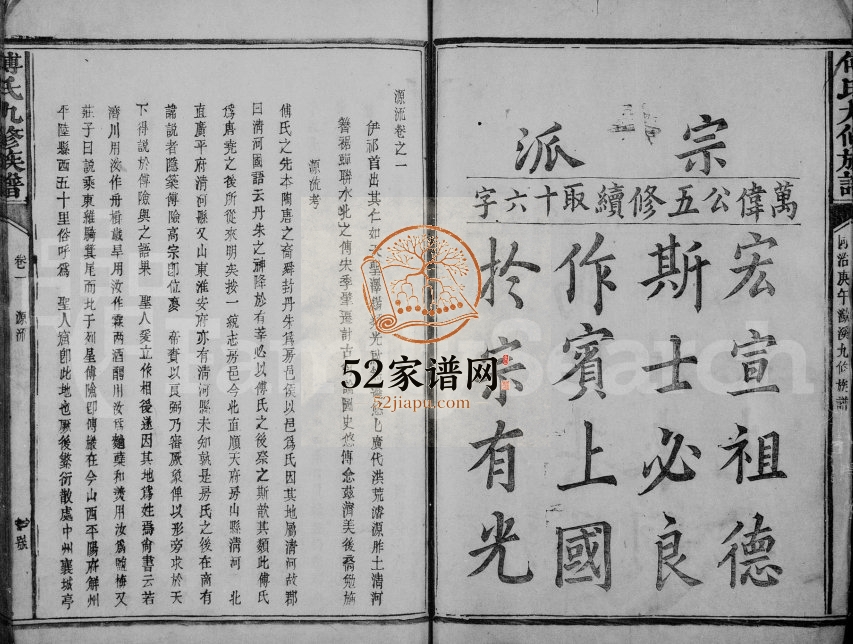 傅氏九修族譜
同治庚午瀏溪九修族譜
宗派
萬偉公五修續取十六字
宏宣祖德
斯士必良
作賓上國
於宗有光
源流卷之一
伊祁首出其仁如天聖澤
廣代洪荒濬源胙土清河
聯水北之傅宋季肇
計古
國史悠傅念茲濟美後裔勉旃
源流考
傅氏之先本陶唐之裔舜封丹朱為房邑侯以邑為氏因其地屬清河故郡
曰清河國語云丹朱之神降於有莘必以傅氏之後祭之斯歆其類此傅氏
為唐堯之後所從來明矣按一統志房邑今北直順天府房山縣清河 北
直廣平府清河縣又山東淮安府亦有清河縣未知孰是房氏之後在商有
諱說者隱築傅險高宗即位夢 帝賚以良弼乃審厥象俾以形旁求於天
下得說於傅險與之語果 聖人爰立作相後遂因其地為姓焉尚書云若
濟川用汝作舟楫歲旱用汝作霖雨酒醴用汝為麯糵和羹用汝為鹽梅又
莊子曰說乘東維騎箕尾而比于列星傅險即傅巖在今山西平陽府解州
平陸縣西五十里俗呼為 聖人窟即此地也厥後繁衍散處中州襄城亭
傅氏九修族譜
卷一 源流
52家谱网
52jiapu.com